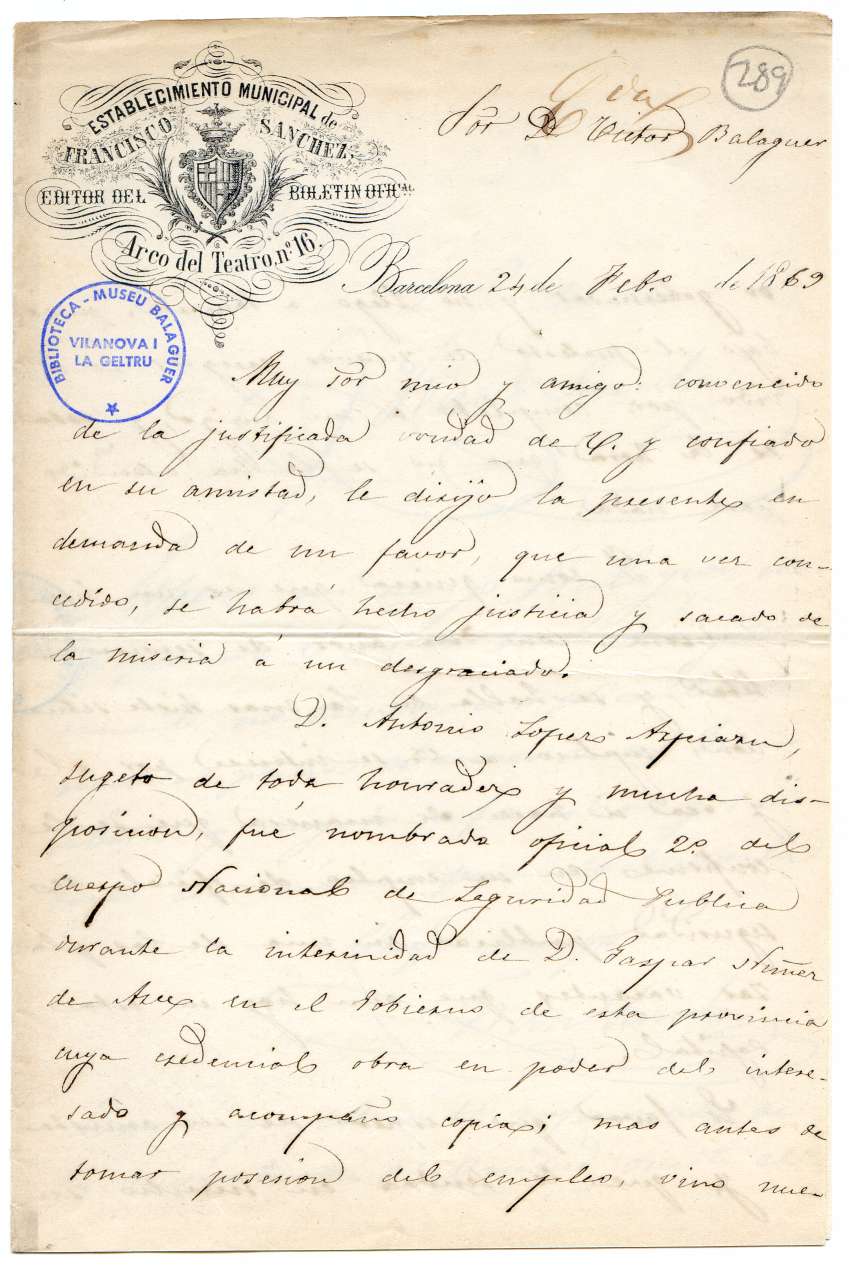 289
ESTABLECIMIENTO MUNICIPAL de
FRANCISCO SANCHEZ,
EDITOR DEL BOLETIN OFICIAL
Arco del Teatro, nº 16.
Sor Dn Victor Balaguer
Barcelona 24 de Febo. de 1869
BIBLIOTECA - MUSEU BALAGUER
VILANOVA I
LA GELTRU
Muy Sor mio y amigo: convencido
de la justificada vondad de V. y confiado
en su amistad, le dirijo la presente en
demanda de un favor, que una vez con-
cedido, se habrá hecho justicia y sacado de
la miseria á un desgraciado.
D. Antonio Lopez Azpiazu,
sugeto de toda honradez y mucha dis-
posicion, fué nombrado oficial 2º del
cuerpo Nacional de Seguridad Publica
durante la interinidad de D. Gaspar Nuñez
de Arce en el Gobierno de esta provincia
cuya credencial obra en poder del intere-
sado y acompaño copia; mas antes de
tomar posesion del empleo, vino nue-